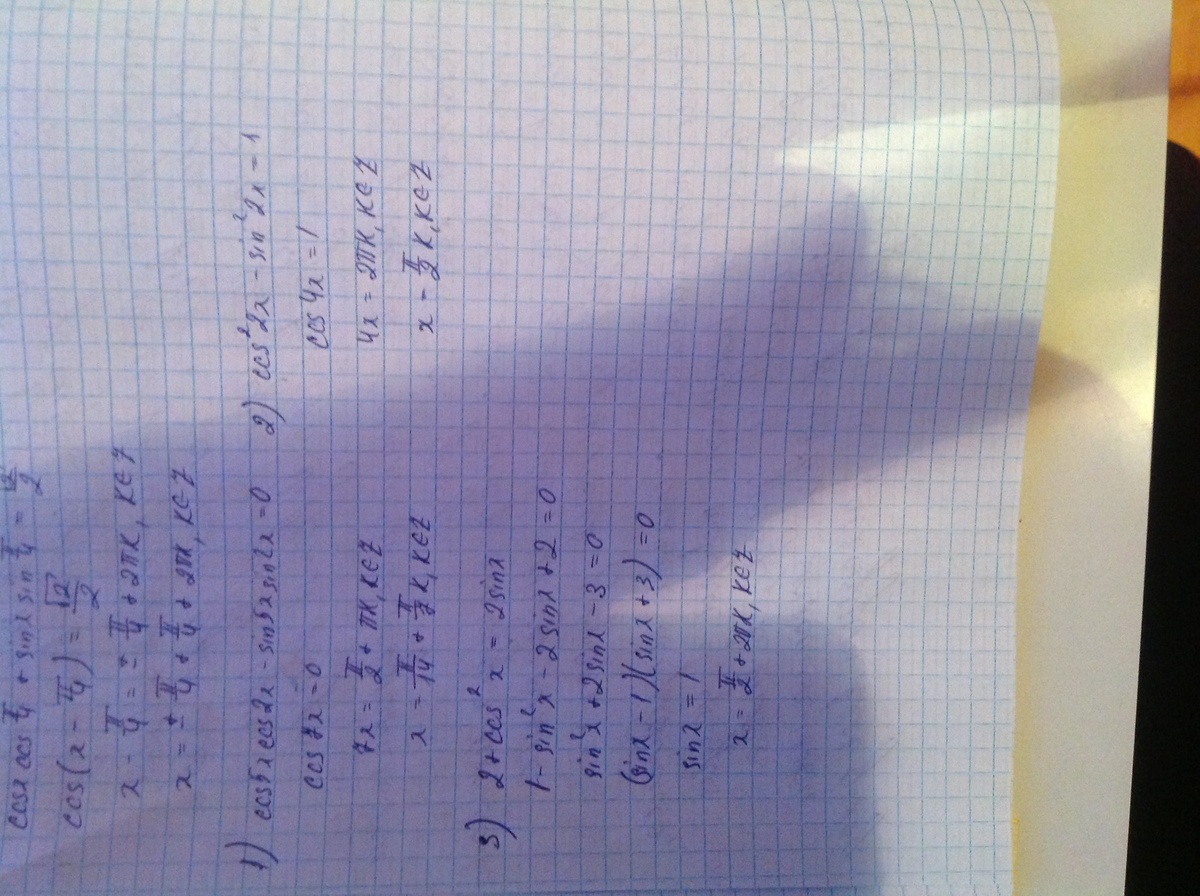 cosx cos π/4 + sinx sin π/4 = √2/2
cos(x - π/4) = √2/2
x - π/4 = ± π/4 + 2πk, k∈Z
x = ± π/4 + π/4 + 2πk, k∈Z
1) cos5x cos2x - sin5x sin2x = 0
cos7x = 0
7x = π/2 + πk, k∈Z
x = π/14 + π/7 k, k∈Z
2) cos²2x - sin²2x = 1
cos4x = 1
4x = 2πk, k∈Z
x = π/2 k, k∈Z
3) 2 + cos²x = 2sinx
1 - sin²x - 2sinx + 2 = 0
sin²x + 2sinx - 3 = 0
(sinx - 1)(sinx + 3) = 0
sinx = 1
x = π/2 + 2πk, k∈Z